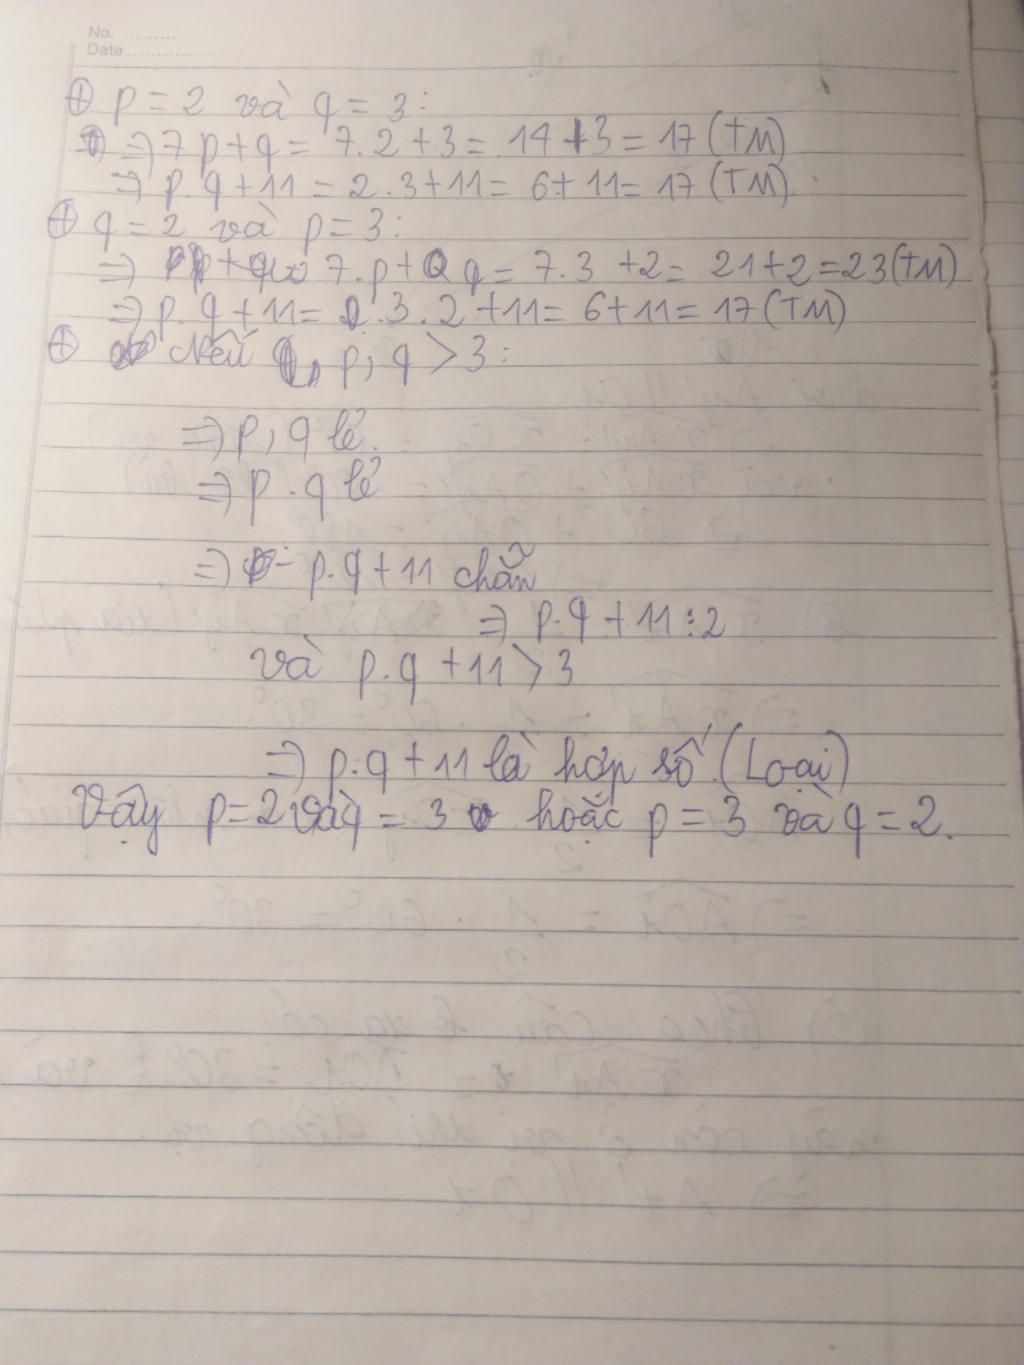 No. ..........
Date ..................
⊕ p = 2 và q = 3:
⇒ 7p+q = 7.2+3 = 14+3 = 17 (TM)
⇒ p.q+11 = 2.3+11 = 6+11 = 17 (TM).
⊕ q = 2 và p = 3:
⇒ 7.p+q = 7.3+2 = 21+2 = 23 (TM)
⇒ p.q+11 = 3.2+11 = 6+11 = 17 (TM)
⊕ Nếu p, q > 3:
⇒ p, q lẻ.
⇒ p.q lẻ
⇒ p.q+11 chẵn
⇒ p.q+11 ⋮ 2
và p.q+11 > 3
⇒ p.q+11 là hợp số. (Loại)
Vậy p=2 và q = 3 hoặc p = 3 và q = 2.